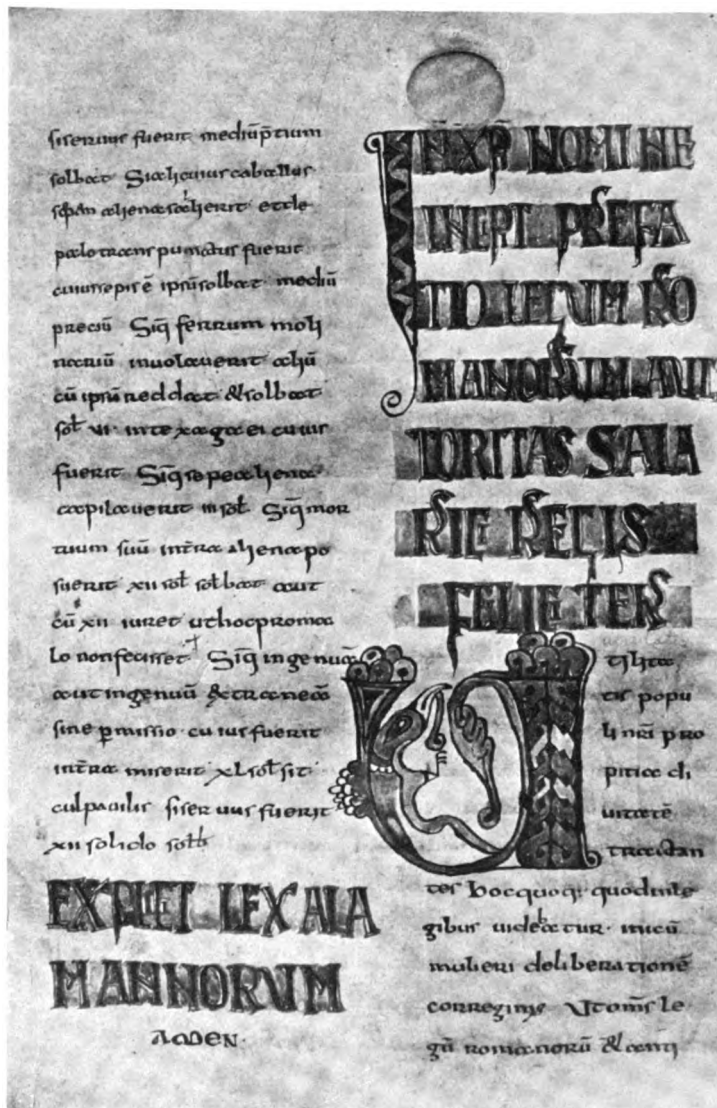 siseruus fuerit mediũ p̃tium
solbat Si alicuius caballus
sepẽ alienã salierit et de
palo transpunctus fuerit
cuius sepis ẽ ipsũ solbat mediũ
preciũ Siq̃ ferrum moli
nariũ inuolauerit aliũ
cũ ipsũ reddat & solbat
sol̃ VI · inte xaga ei cuius
fuerit · Siq̃ sepe alienã
capilauerit III sol̃ Siq̃ mor
tuum suũ intra aliena po
suerit · XII sol̃ solbat aut
cũ XII iuret ut hoc pro ma
lo non fecisset · Siq̃ ingenuã
aut ingenuũ & traneã
sine p̱missio · cuius fuerit
intra miserit · XL sol̃ sit ·
culpabilis siseruus fuerit
XII solido sol̃b
EXPLICIT LEX ALA
MANNORUM
AṁEN ·
IN XP̃I NOMINE
INCIPT PREFA
TIO LEGUM RO
MANORUM AUT
TORITAS SALA
RIE REGIS
FELICITER
Utilita
tis popu
li nr̃i pro
pitia di
uitatẽ
tractan
tes hoc quoq; quod in le
gibus uidebatur · inicũ
mulieri deliberationẽ
corregimus Ut om̃s le
gũ romanorũ & anti